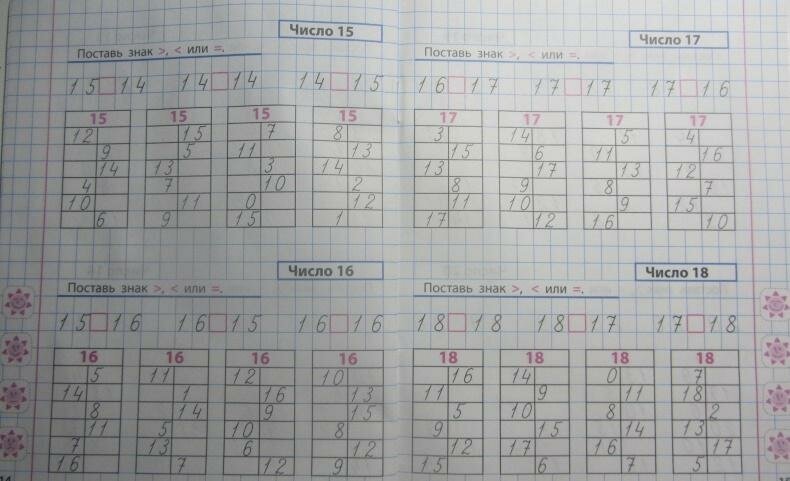 Число 15
Поставь знак >, < или =.
15 □ 14 14 □ 14 14 □ 15
15 15 15 15
12 15 7 8
9 5 11 13
14 13 3 14
4 7 10 2
10 11 0 12
6 9 15 1
Число 16
Поставь знак >, < или =.
15 □ 16 16 □ 15 16 □ 16
16 16 16 16
5 11 12 10
14 1 16 13
8 14 9 15
11 5 10 8
7 13 6 12
16 7 12 9
Число 17
Поставь знак >, < или =.
16 □ 17 17 □ 17 17 □ 16
17 17 17 17
3 14 5 4
15 6 11 16
13 17 13 12
8 9 8 7
11 10 9 15
17 12 16 10
Число 18
Поставь знак >, < или =.
18 □ 18 18 □ 17 17 □ 18
18 18 18 18
16 14 0 7
11 9 11 18
5 10 8 2
9 15 14 13
12 17 16 17
15 6 7 5